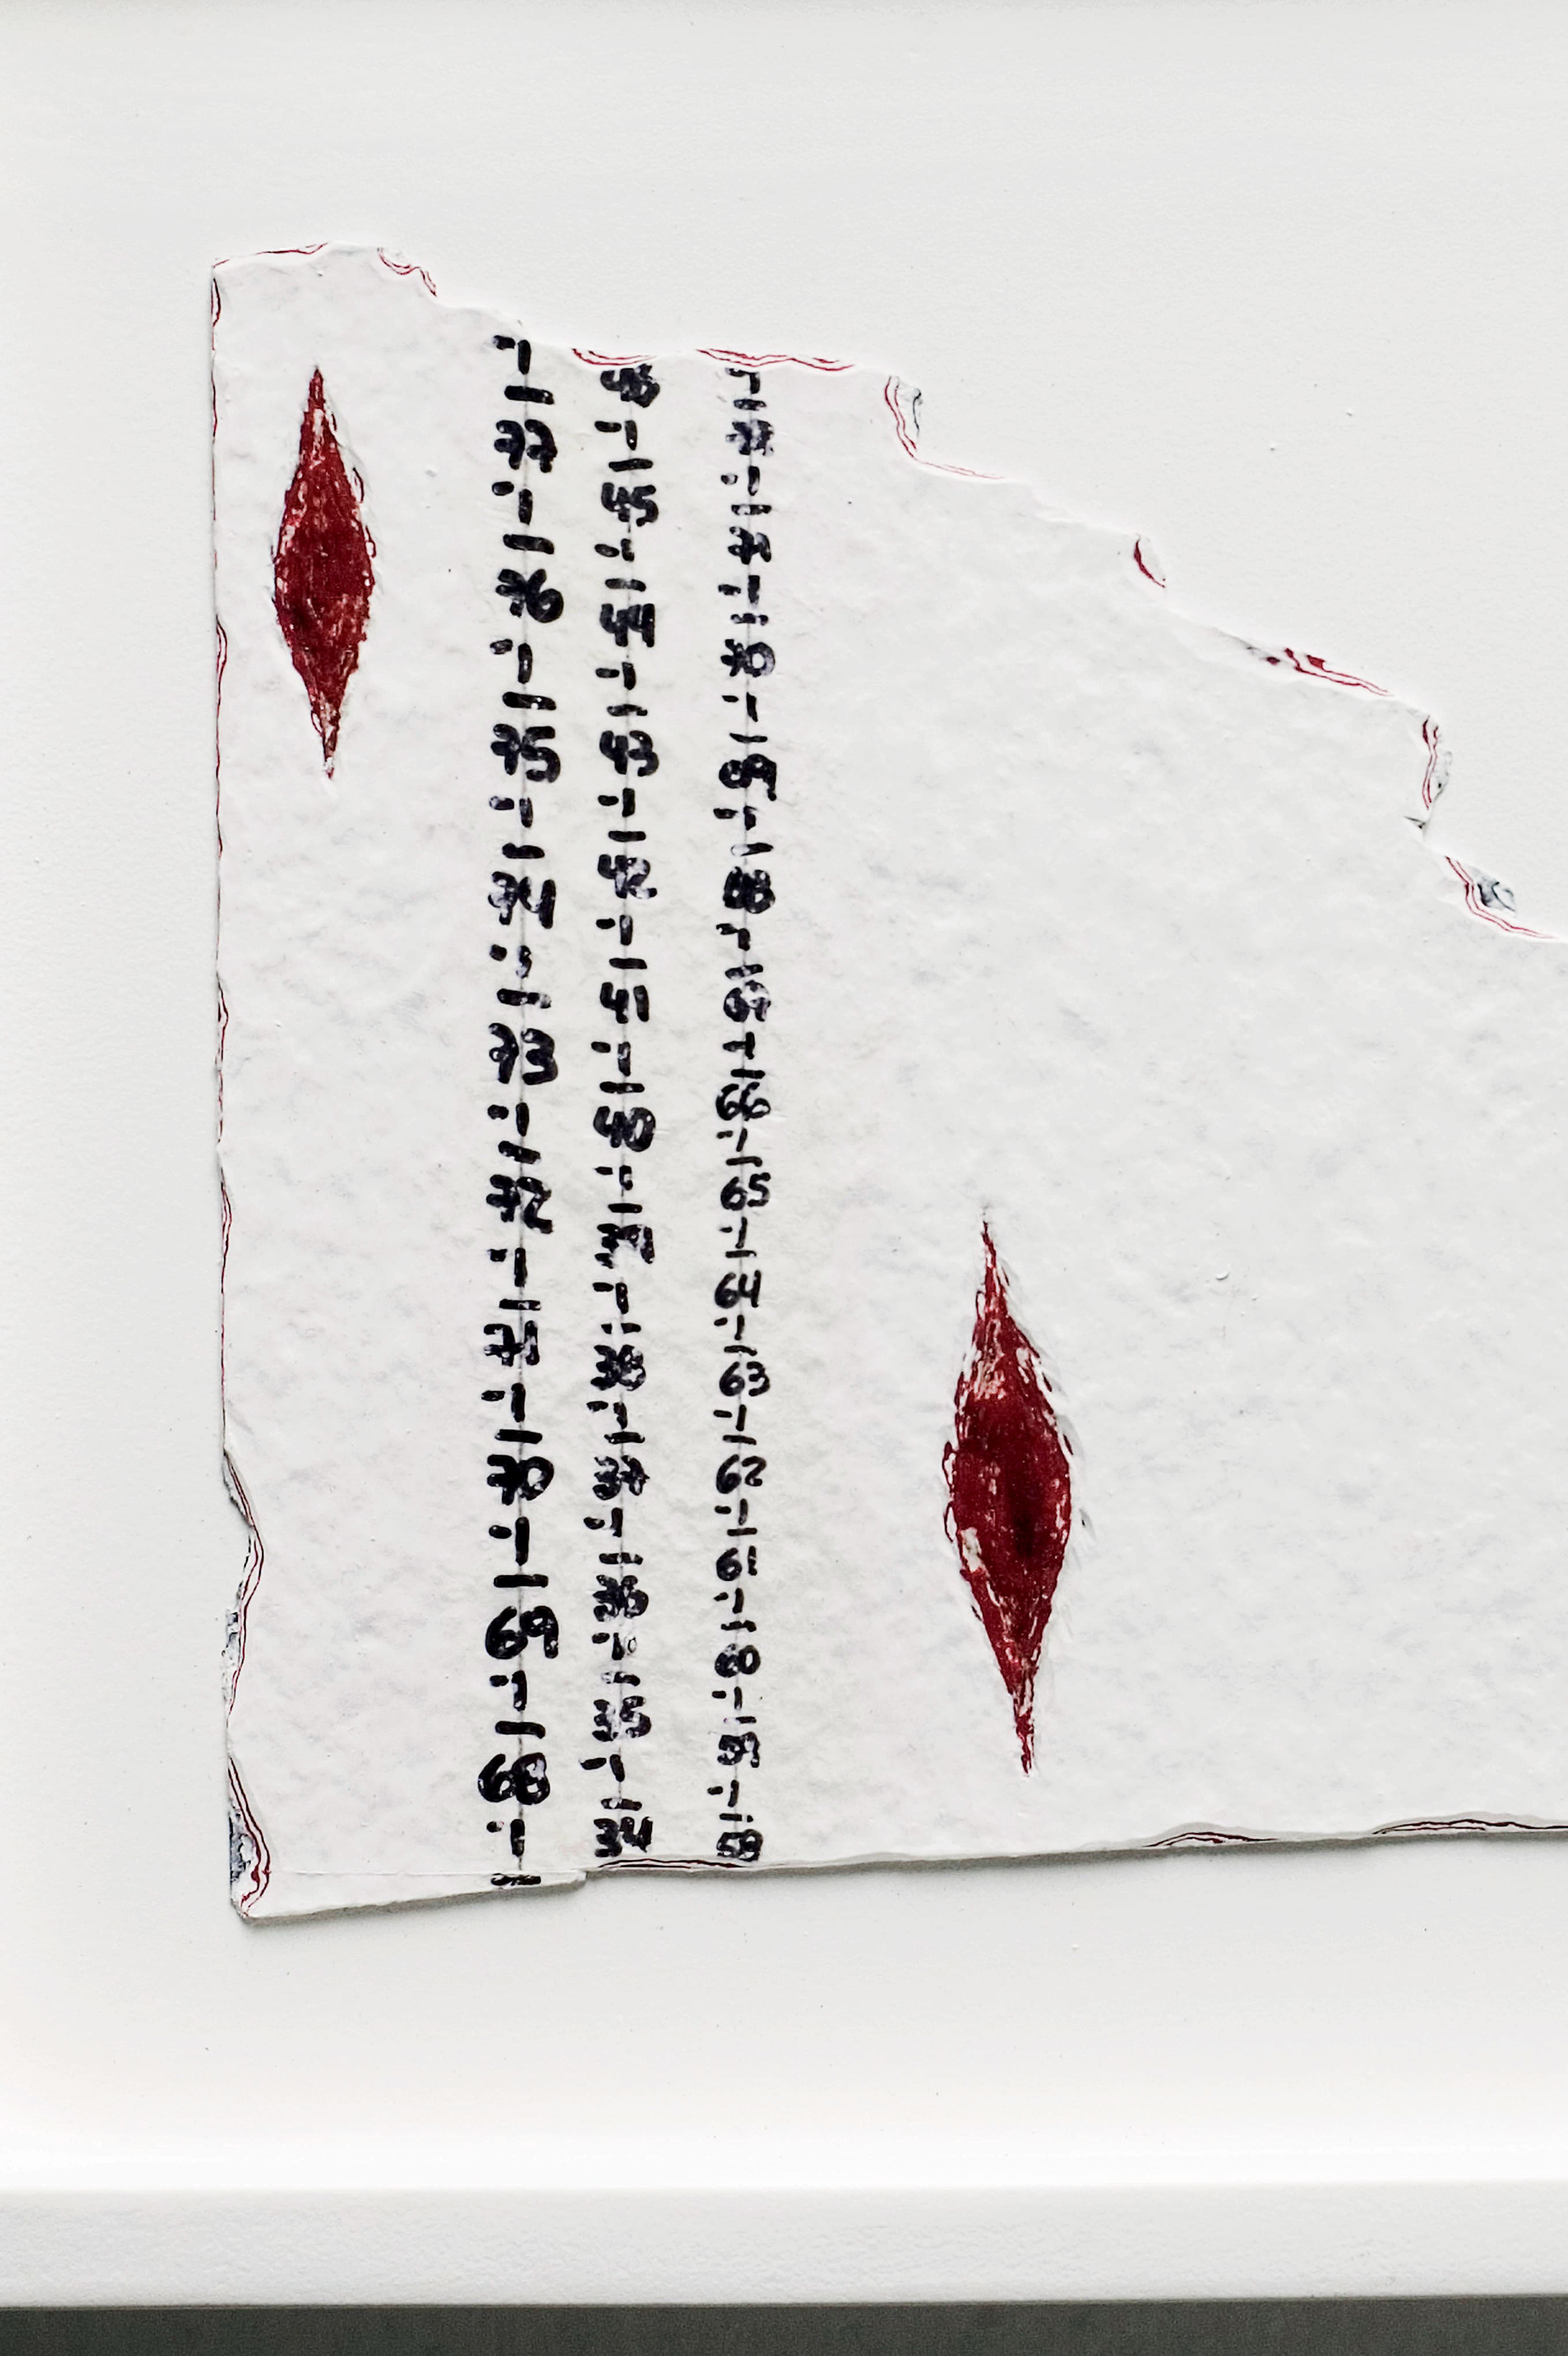 77
76
75
74
73
72
71
70
69
68
46
45
44
43
42
41
40
39
38
37
36
35
34
72
71
70
69
68
67
66
65
64
63
62
61
60
59
58